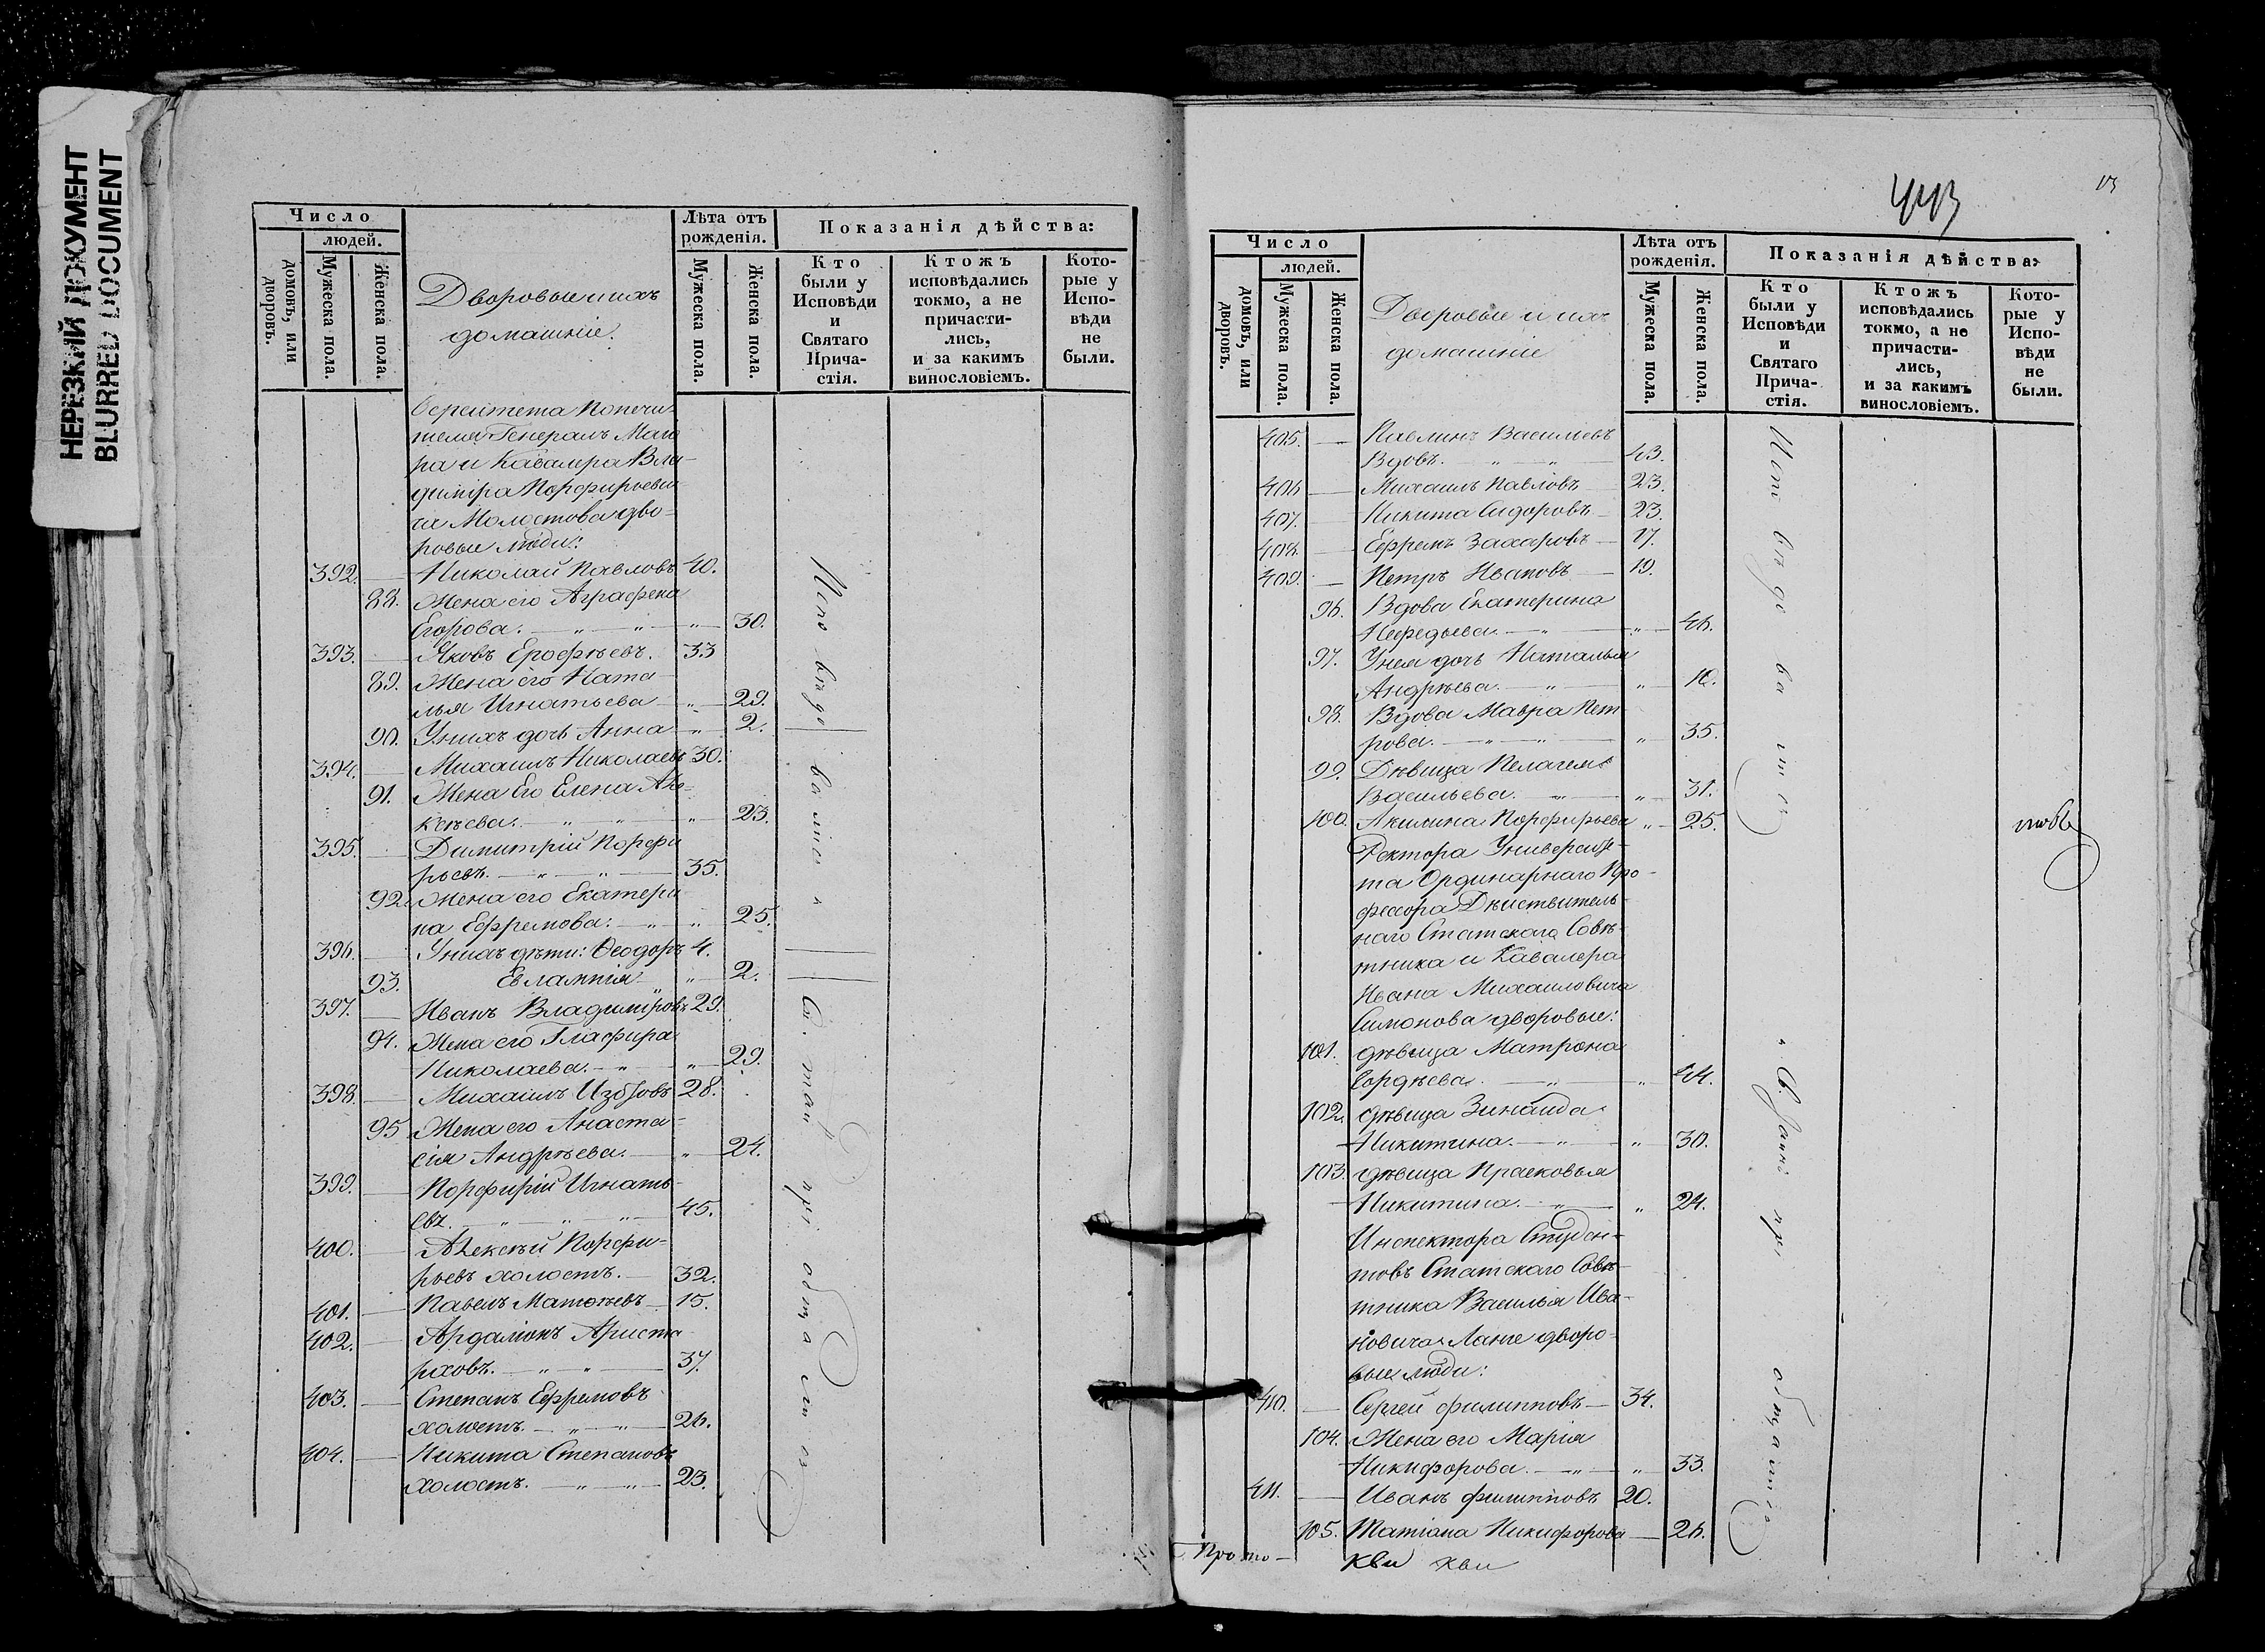 НЕРЕЗКИЙ ДОКУМЕНТ
BLURRED DOCUMENT
Число
людей.
домовъ, или дворовъ.
Мужеска пола.
Женска пола.
Дворовые и ихъ
домашніе.
Лѣта отъ
рожденія.
Мужеска пола.
Женска пола.
Показанія дѣйства:
Кто
были у
Исповѣди
и
Святаго
Прича-
стія.
Ктожъ
исповѣдались
токмо, а не
причасти-
лись,
и за какимъ
винословіемъ.
Кото-
рые у
Испо-
вѣди
не
были.
Попечи-
теля Генералъ Маiо
ра и Кавалера Вла-
димiра Порфирьеви
ча Молостова дво-
ровые люди:
392. Николай Павловъ 40.
88. Жена его Аграфена
Егорова. 30.
393. Яковъ Ерофѣевъ. 33
89. Жена его Ната-
лья Игнатьева 29.
90. У нихъ дочь Анна 2.
394. Михаилъ Николаевъ 30.
91. Жена его Елена Але-
ксѣева. 23.
395. Димитрій Порфи
рьевъ. 35.
92. Жена его Екатери
на Ефремова. 25.
396. У нихъ дѣти: Ѳеодоръ 4.
93. Евлампія 2.
397. Иванъ Владимiровъ 29.
94. Жена его Глафира
Николаева. 29.
398. Михаилъ 28.
95 Жена его Анаста-
сія Андрѣева. 24.
399. Порфирій Игнать-
евъ. 45.
400. Алексѣй Порфи-
рьевъ холостъ. 32.
401. Павелъ Матвѣевъ 15.
402. Ардаліонъ Ариста
рховъ. 37.
403. Степанъ Ефремовъ
холостъ. 26.
404. Никита Степановъ
холостъ. 23.
443
13
Число
людей.
домовъ, или дворовъ.
Мужеска пола.
Женска пола.
Дворовые и ихъ
домашніе
Лѣта отъ
рожденія.
Мужеска пола.
Женска пола.
Показанія дѣйства:
Кто
были у
Исповѣди
и
Святаго
Прича-
стія.
Ктожъ
исповѣдались
токмо, а не
причасти-
лись,
и за какимъ
винословіемъ.
Кото-
рые у
Испо-
вѣди
не
были.
405. Павлинъ Васильевъ
Вдовъ. 43.
406 Михаилъ Павловъ 23.
407. Никита Сидоровъ 23.
408. Ефремъ Захаровъ 17.
409. Петръ Ивановъ 19.
96. Вдова Екатерина
Нефедьева. 46.
97. У нея дочь Наталья
Андрѣева. 10.
98. Вдова Мавра Пет
рова. 35.
99. Дѣвица Пелагея
Васильева. 31.
100. Акилина Порфирьева 25.
Ректора Университе-
та Ординарнаго Про-
фесора Дѣиствитель-
наго Статскаго Совѣ-
тника и Кавалера
Ивана Михаиловича
Симонова дворовые:
101. дѣвица Матрона
Гордѣева. 44.
102. дѣвица Зинаида
Никитина. 30.
103. дѣвица Прасковья
Никитина. 24.
Инспектора Студен-
товъ Статскаго Совѣ-
тника Василья Ива-
новича Ланге дворо-
вые люди:
410. Сергей Филипповъ 34.
104. Жена его Марія
Никифорова. 33.
411. Иванъ Филипповъ 20.
105. Татіана Никифорова 26.
Прото-